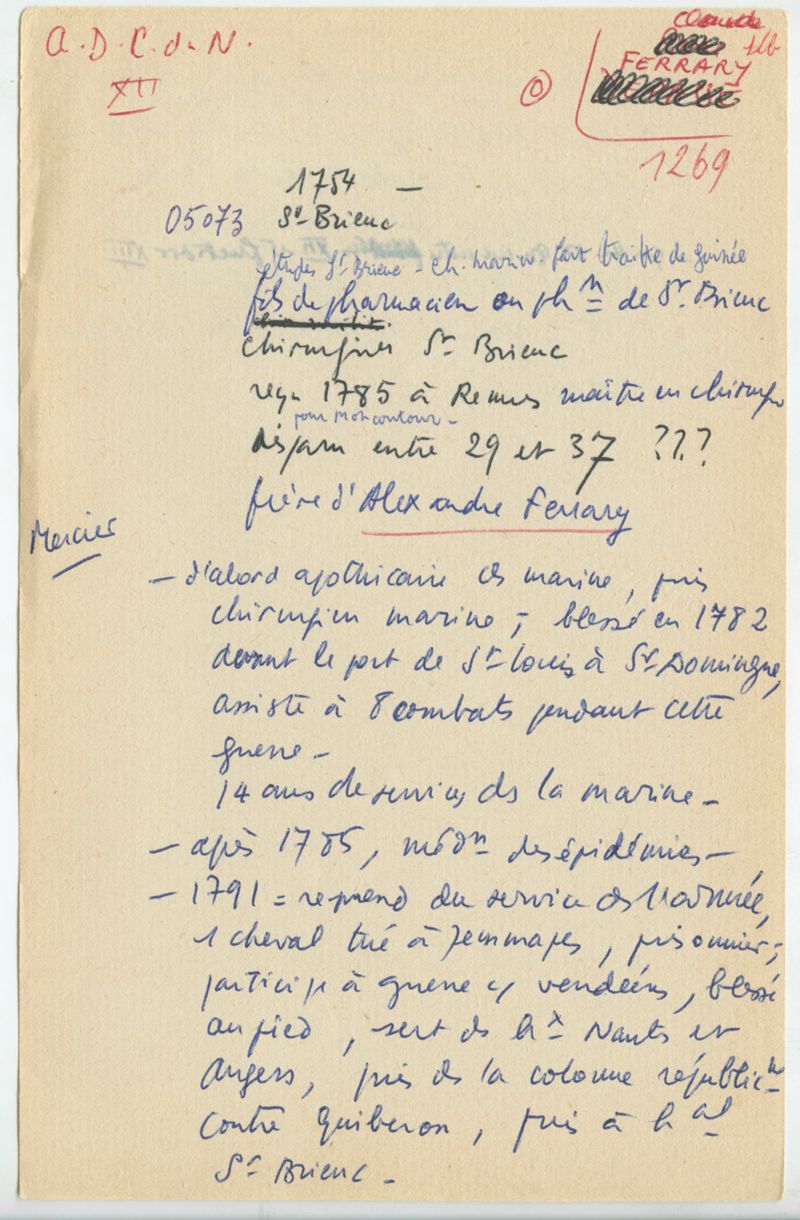 A.D.C.du.N.
XII
Claude
FERRARY
1269
1754 —
05073 St Brieuc
études St Brieuc - ch. marine fait traite de guinée
fils de pharmacien ou phn de St Brieuc
chirurgien St Brieuc
reçu 1785 à Rennes maître en chirurgie
pour Moncontour -
disparu entre 29 et 37 ???
frère d'Alexandre Ferrary
Mercier
— d'abord apothicaire ds marine, puis
chirurgien marine ; blessé en 1782
devant le port de St-Louis à St Domingue,
assiste à 8 combats pendant cette
guerre -
14 ans de services ds la marine -
— après 1785, médn des épidémies -
— 1791 = reprend du service ds l'armée,
1 cheval tué à Jemmapes, prisonnier ;
participe à guerre c/ vendéens, blessé
au pied, sert ds hx Nantes et
Angers, puis ds la colonne républicne
contre Quiberon, puis à hal
St Brieuc -